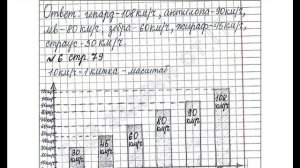 Ответ: гепард-108км/ч, антилопа-90км/ч,
лев-80км/ч, зебра-60км/ч, жираф-45км/ч,
страус-30км/ч.
№6 стр. 79
10км/ч=1 клетка - масштаб
108 км/ч
90 км/ч
80 км/ч
60 км/ч
45 км/ч
30 км/ч